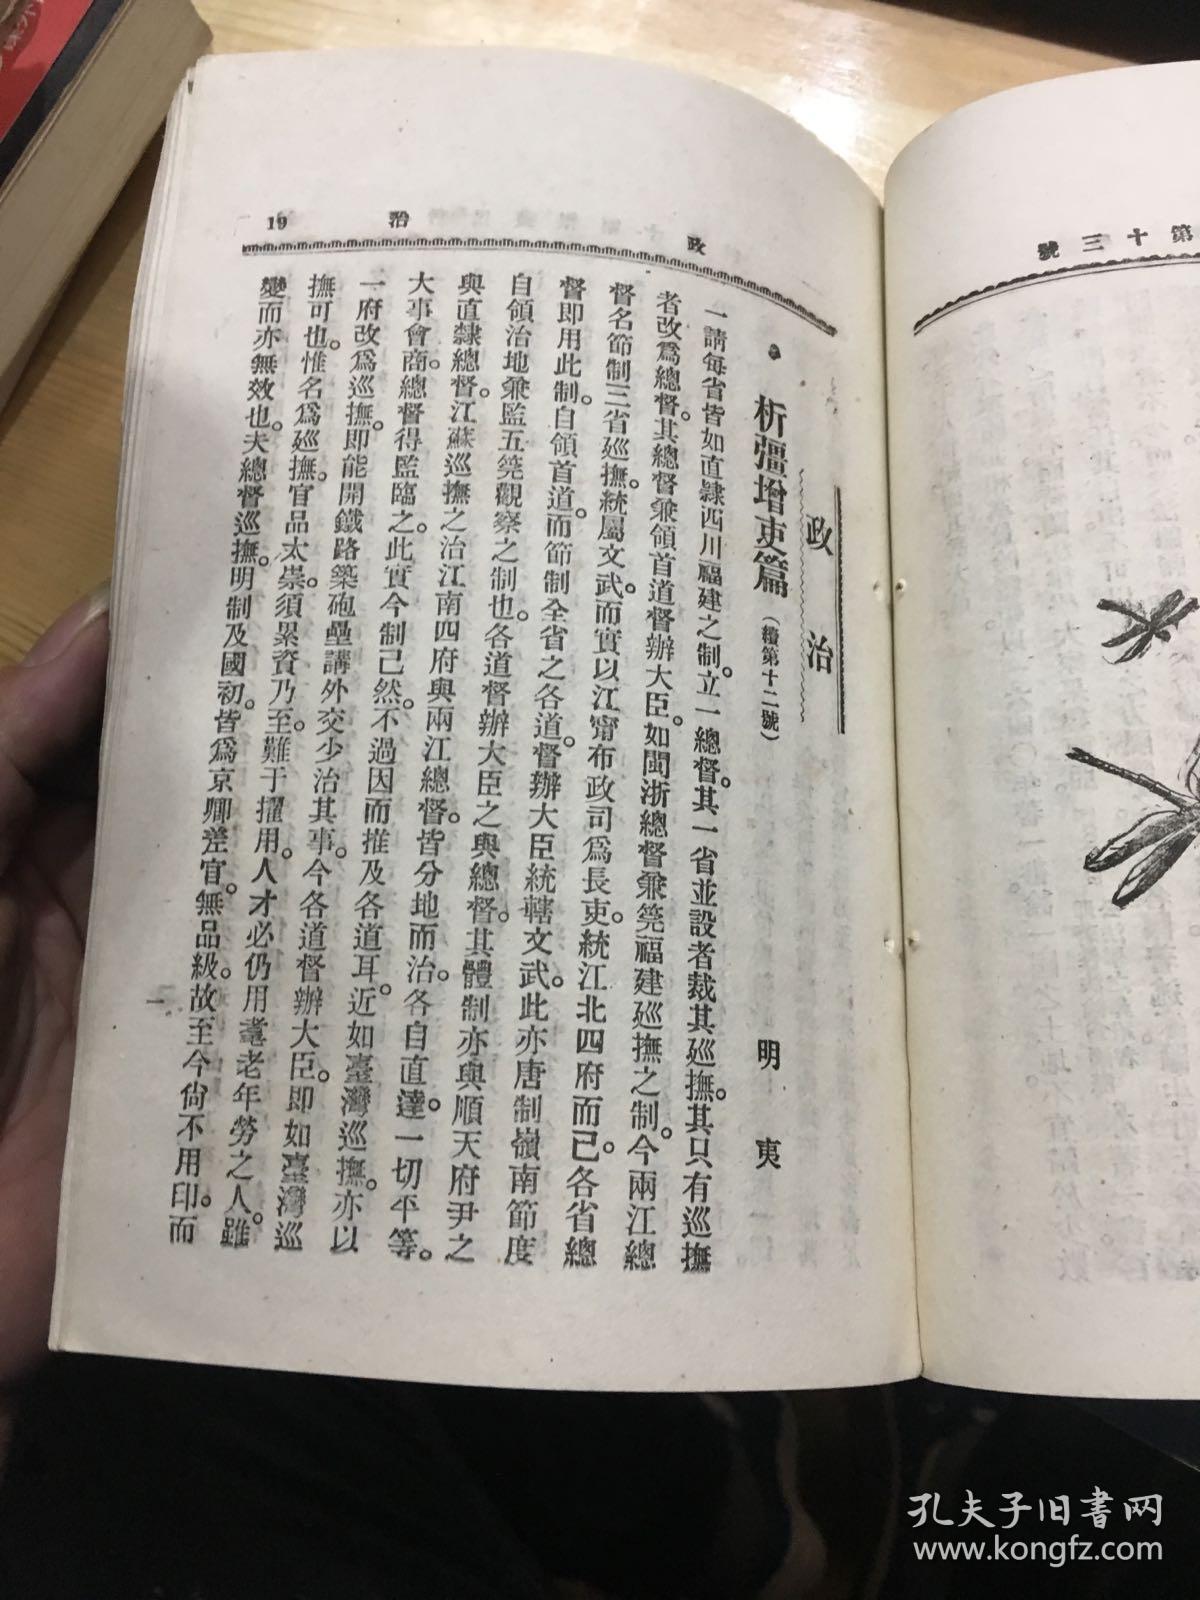 第十三號
政治
19
政治
析彊增吏篇(續第十二號)
明夷
一請每省皆如直隸四川福建之制。立一總督。其一省並設者裁其廵撫。其只有巡撫
者改爲總督。其總督兼領首道督辦大臣。如閩浙總督兼筦福建廵撫之制。今兩江總
督名節制三省巡撫。統屬文武。而實以江甯布政司爲長吏。統江北四府而已。各省總
督即用此制。自領首道。而節制全省之各道。督辦大臣統轄文武。此亦唐制嶺南節度
自領治地兼監五筦觀察之制也。各道督辦大臣之與總督。其體制亦與順天府尹之
與直隸總督。江蘇巡撫之治江南四府與兩江總督。皆分地而治。各自直達。一切平等。
大事會商。總督得監臨之。此實今制已然。不過因而推及各道耳。近如臺灣巡撫。亦以
一府改爲巡撫。即能開鐵路築砲壘講外交少治其事。今各道督辦大臣。即如臺灣巡
撫可也。惟名爲廵撫。官品太崇。須累資乃至。難于擢用。人才必仍用耄老年勞之人。雖
變而亦無效也。夫總督巡撫。明制及國初。皆爲京卿差官。無品級。故至今尙不用印。而
一
孔夫子旧书网
www.kongfz.com